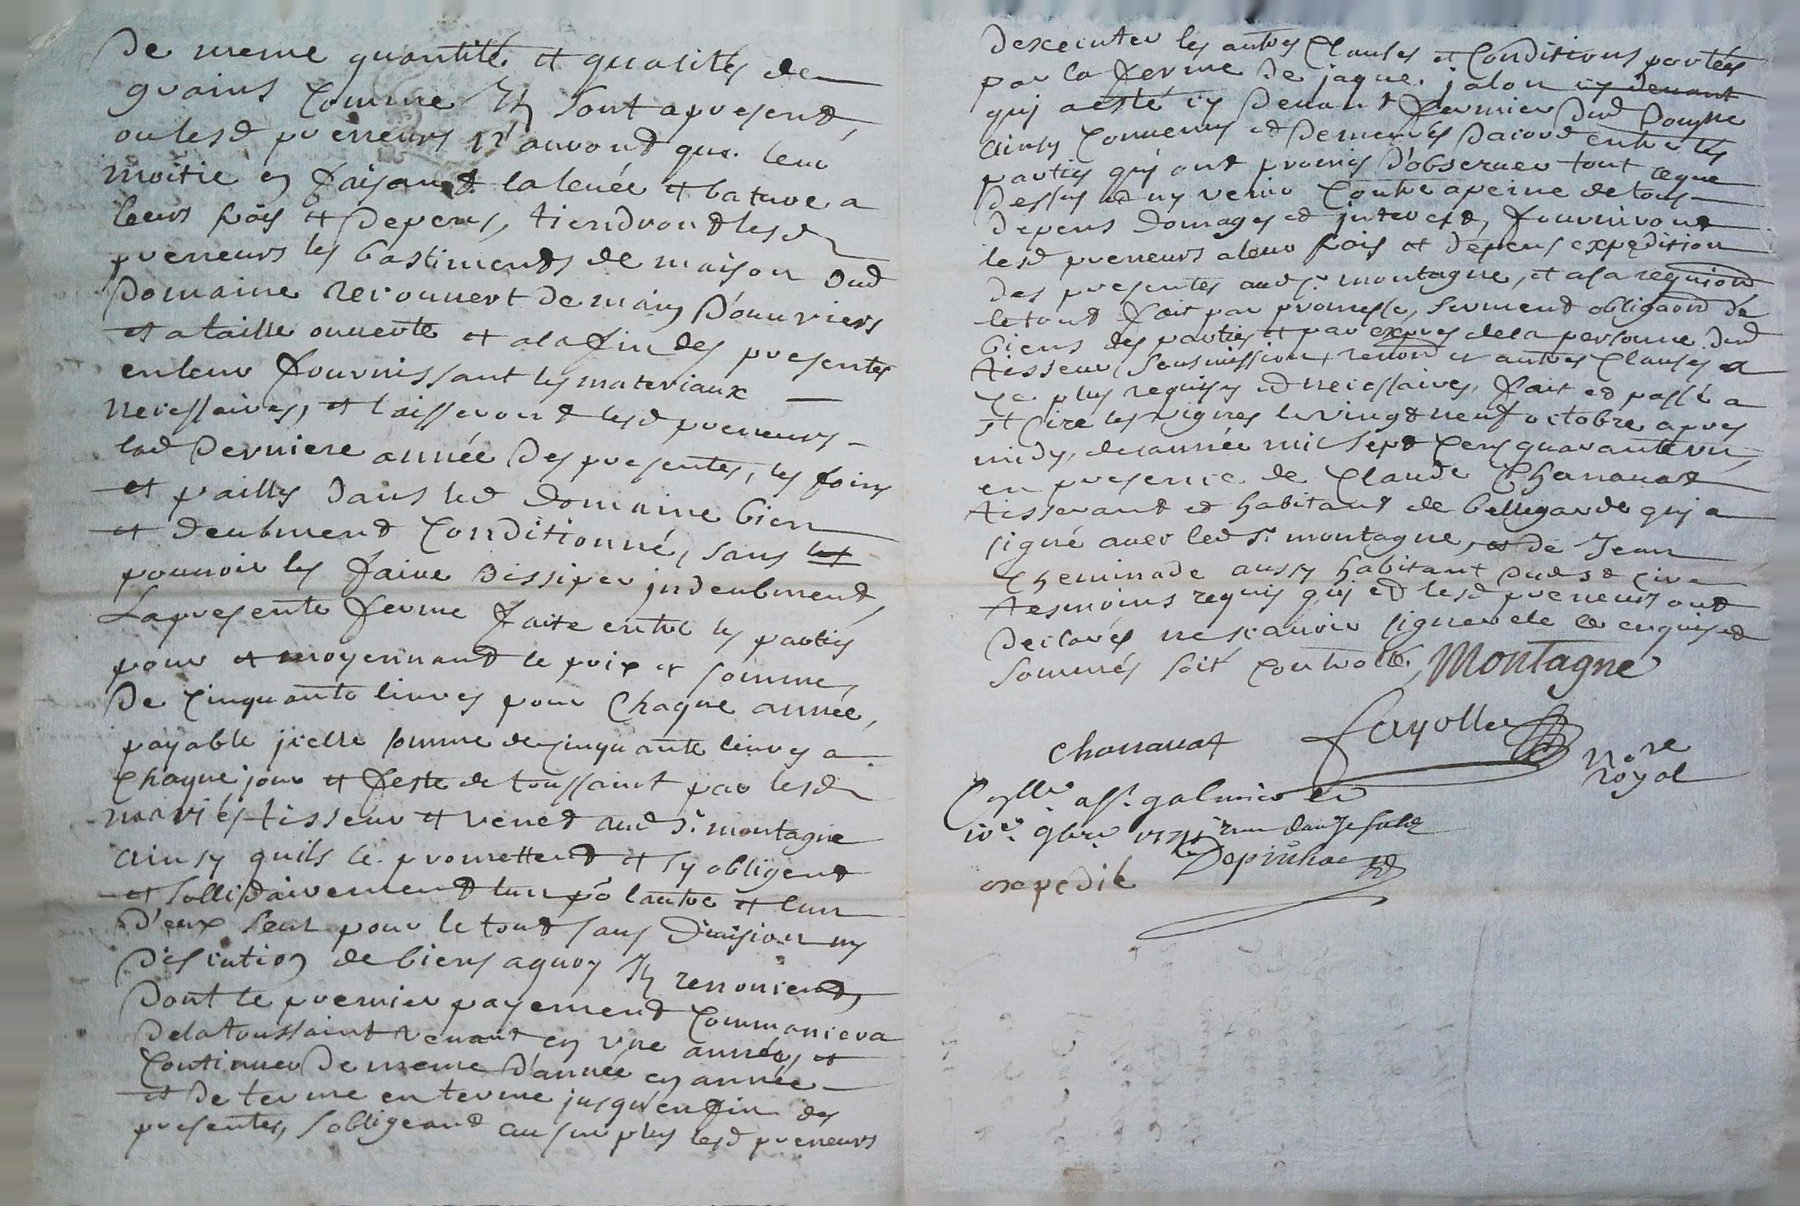 De meme quantité et qualités de
grains comme Ils sont apresent,
ou lesd preneurs n'auront que leur
moitie en faisant la levée et bature a
leurs frais et depens, tiendront lesd
preneurs les bastiments de maison dud
Domaine recouvert de main d'ouvriers
et a taille ouverte et a la fin des presentes
en leur fournissant les materiaux
necessaires, et laisseront lesd preneurs
lad derniere année des presentes, les foins
et pailles dans led domaine bien
et deubment conditionné, sans
pouvoir les faire dissiper indeubment,
La presente ferme faite entre les parties
pour et moyennant le prix et somme
De cinquante livres pour chaque année,
payable jcelle somme de cinquante livres a
chaque jour et feste de toussaint par lesd
mariés tisseur et venet aud Sr montagne
ainsy quils le promettent et sy obligent
et sollidairement lun po lautre et lun
d'eux seul pour le tout sans Division ny
Discution de biens a quoy Ils renoncent,
Dont le premier payement commancera
De la toussaint venant en vne année, et
Continuer De meme d'année en année
et De terme en terme jusqu'en fin des
presentes, sobligeant au surplus lesd preneurs
Dexecuter les autres clauses et conditions portées
par la ferme de jaque jalon cy devant
quj a esté cy Devant fermier dud Domne
ainsy convenus et demeurés dacord entre les
parties quj ont promis d'observer tout ce que
Dessus et ny venir contre a peine de tous
depens domages et interest, fourniront
lesd preneurs a leur frais et depens expedition
des presentes aud Sr montagne, et a sa requision
le tout fait par promesse, serment obligaon de
biens des parties et par expres de la personne dud
tisseur, soumission, renon et autres clauses
le plus requises et necessaires, fait et passé a
st Cire les vignes le vingt neuf octobre apres
midy, de lannée mil sept cens quarante vn,
en presence de Claude Chanavat
tisserant et habitant de bellegarde quj a
signé avec led Sr montagne, et de Jean
Cheminade aussy habitant dud st Cire
tesmoins requis quj et lesd preneurs ont
Declarés ne scavoir signer de ce enquis et
sommés soit controllé, Montagne
Chanavat fayolle Nore royal
Conllé a st galmier le
10e 9bre 1741 Depinhac
expedié